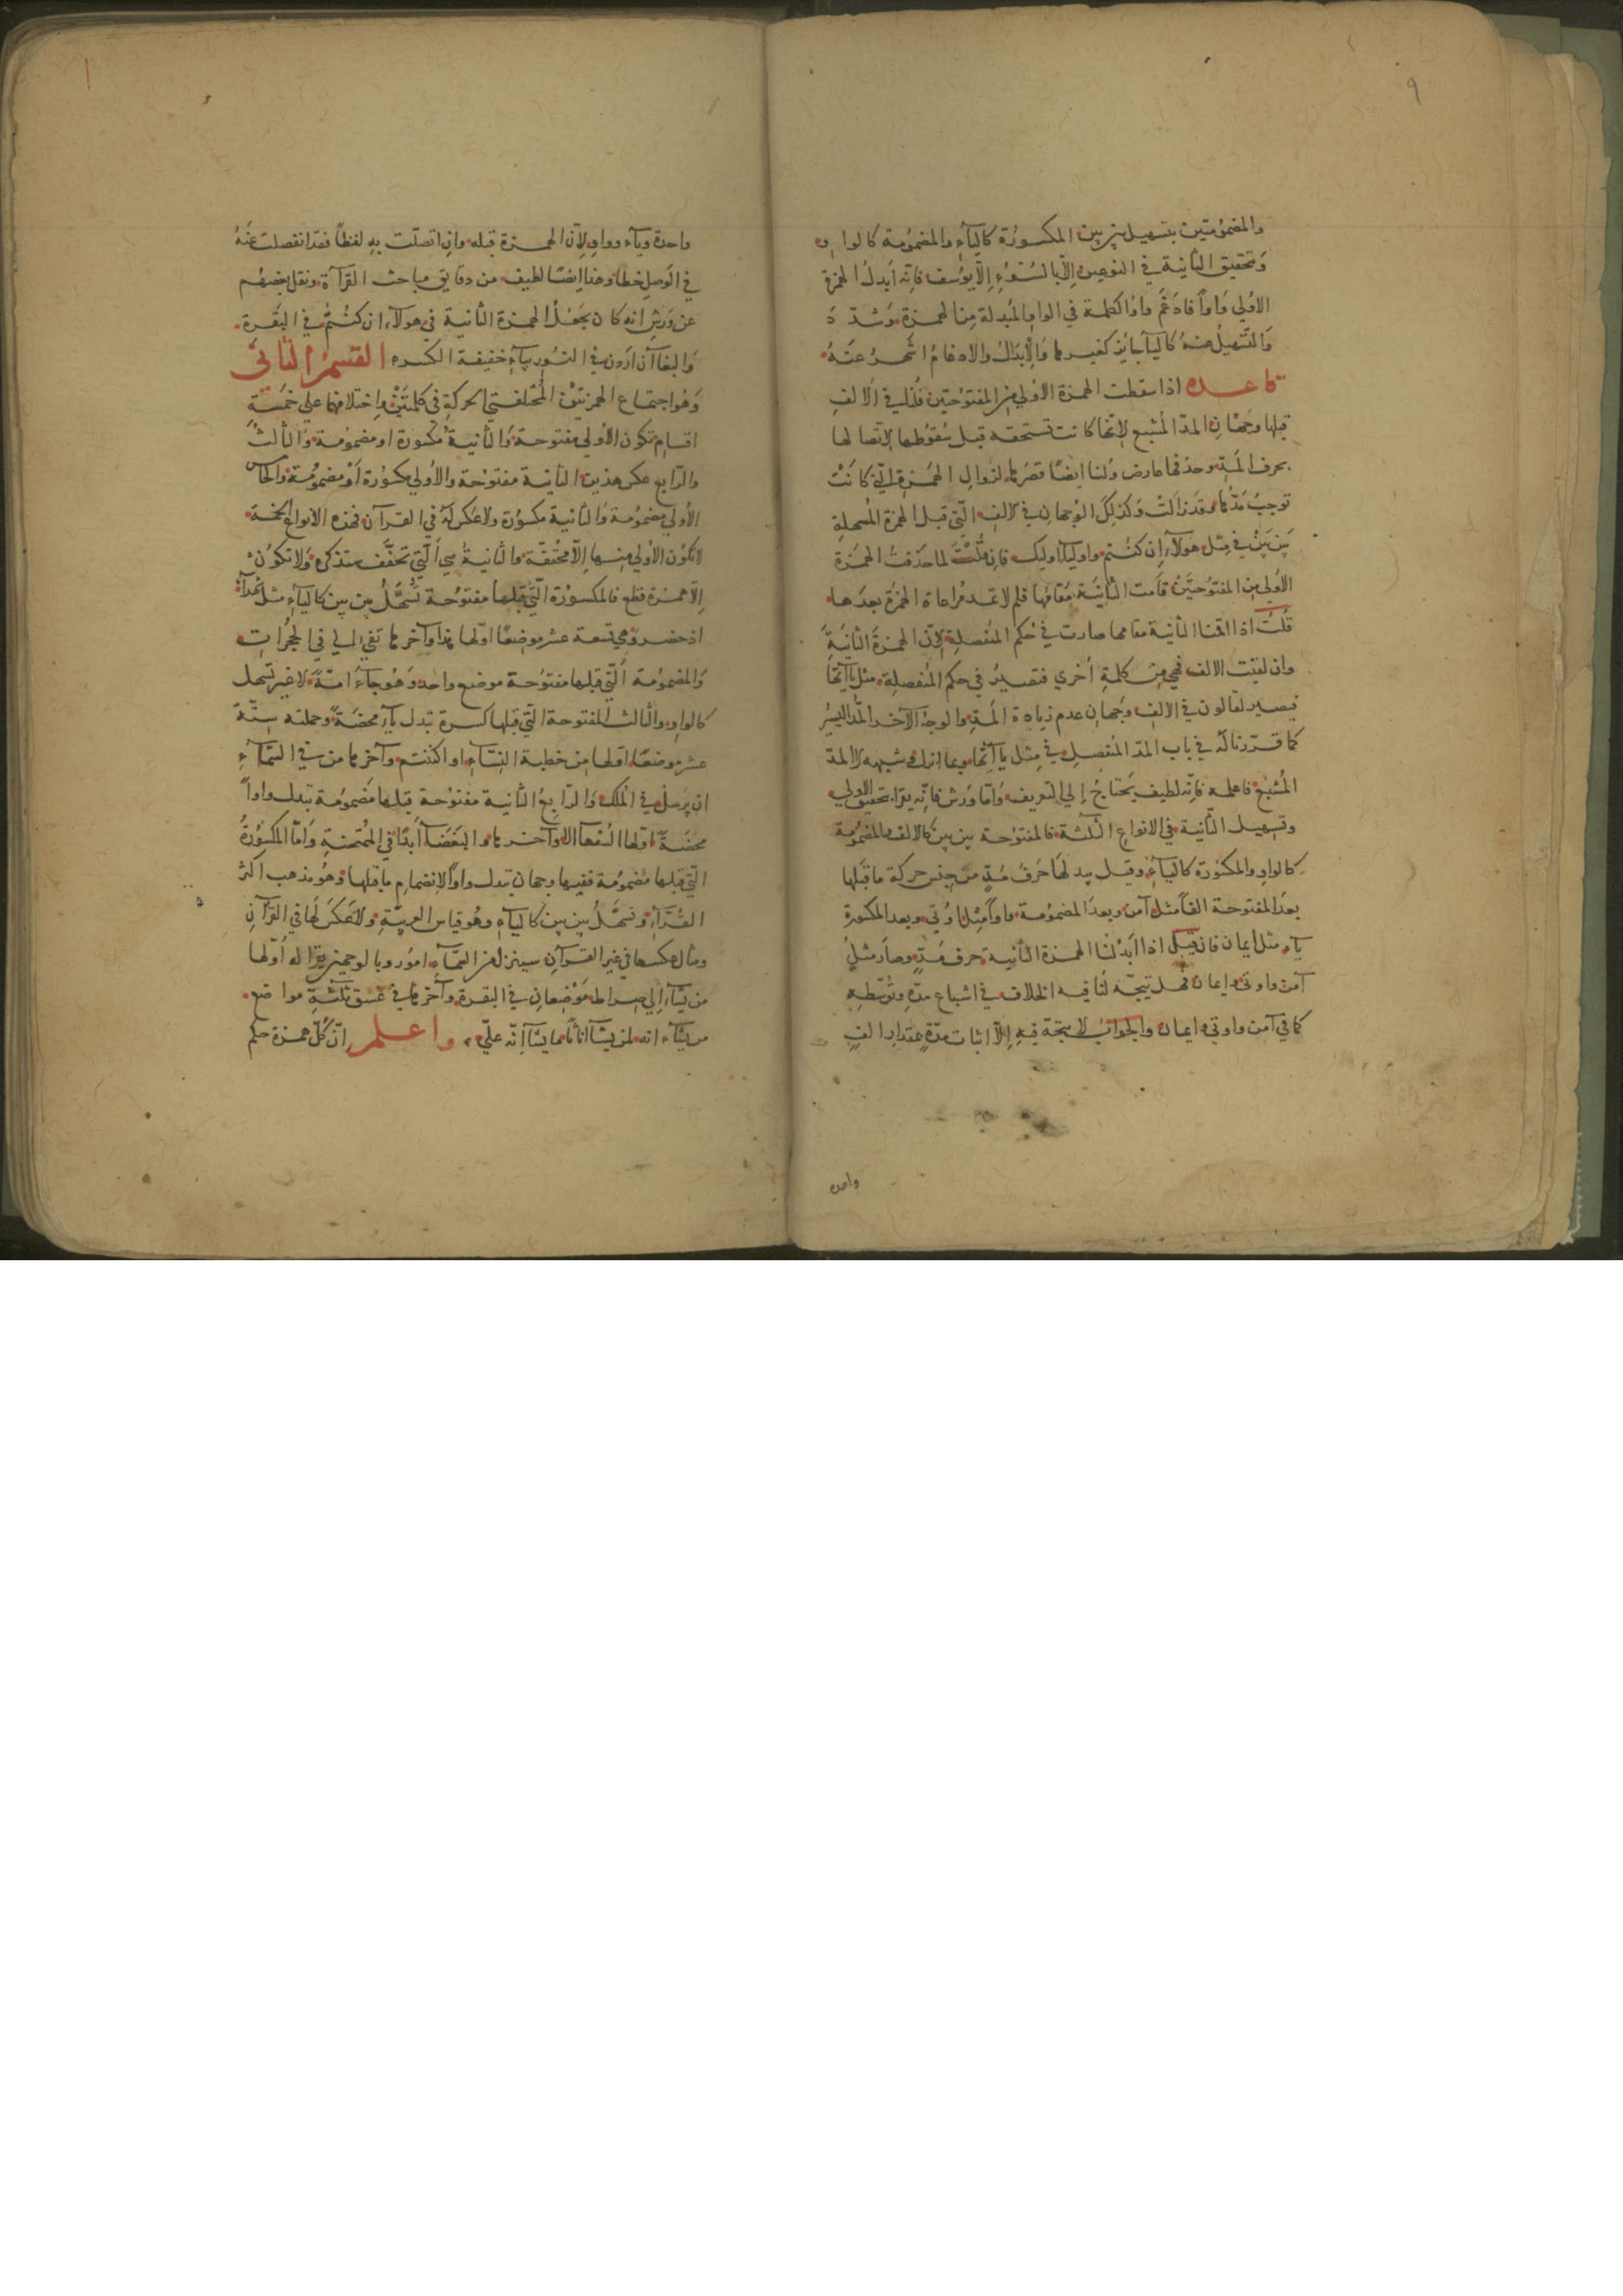 ٩
والمضمومتين بتسهيل بين بين المكسورة كالياء والمضمومة كالواو
وتحقيق الثانية في النوعين إلا بالسوء إلا بيوسف فانه أبدل الهمزة
الاولي واوا فادغم واو الكلمة في الواو المبدلة من الهمزة وشدد
والتسهيل عنه كاليا جايز كغيرها والإبدال والادغام اشهر عنه
قاعده اذا سقطت الهمزة الاولي من المفتوحتين فلنا في الالف
قبلها وجهان المد المشبع لانها كانت تستحقه قبل سقوطها لاتصالها
بحرف المد وحذفها عارض ولنا ايضا قصرها لزوال الهمزة التي كانت
توجب مدها وقد زالت وكذلك الوجهان في الالف التي قبل الهمزة المسهلة
بين بين في مثل هولاء إن كنتم واوليا اوليك فان قلت لما حذفت الهمزة
الاولي من المفتوحتين قامت الثانية مقامها فلم لا تمد مراعاة الهمزة بعدها
قلت اذا اقمنا الثانية مقامها صارت في حكم المنفصلة لان الهمزة الثانية
وان لقيت الالف فهي من كلمة أخري فتصير في حكم المنفصلة مثل يا آيها
فيصير لقالون في الالف وجهان عدم زيادة المد والوجه الآخر المد اليسير
كما قررنا له في باب المد المنفصل في مثل يا آيها وبما انزل وشبهه لا المد
المشبع فاعلمه فانه لطيف يحتاج إلي التعريف واما ورش فانه يقرا بتحقيق الاولي
وتسهيل الثانية في الانواع الثلثة فالمفتوحة بين بين كالالف والمضمومة
كالواو والمكسورة كالياء وقيل يبدلها حرف مد من جنس حركة ما قبلها
بعد المفتوحة الفا مثل آمن وبعد المضمومة واوا مثل اوتي وبعد المكسورة
ياء مثل ايمان فان قيل اذا ابدلنا الهمزة الثانية حرف مد وصار مثل
آمن واوتي وايمان فهل يتجه لنا فيه الخلاف في اشباع مده وتوسطه
كما في آمن واوتي وايمان والجواب لا يتجه فيه إلا اثبات مدة بمقدار الف
واحدة
واحدة وياء وواو لان الهمزة قبله وان اتصلت به لفظا فقد انفصلت عنه
في الوصل خطا وهذا ايضا لطيف من دقايق مباحث القراة ونقل بعضهم
عن ورش انه كان يجعل الهمزة الثانية في هولاء ان كنتم في البقرة
والبغا آن اردن في النور بياء خفيفة الكسره القسم الثاني
وهو اجتماع الهمزتين المختلفتي الحركة في كلمتين واختلافهما علي خمسة
اقسام تكون الاولي مفتوحة والثانية مكسورة او مضمومة والثالث
والرابع عكس هذين الثانية مفتوحة والاولي مكسورة او مضمومة والخامس
الاولي مضمومة والثانية مكسورة ولا عكس له في القرآن فهذه الانواع الخمسة
لا تكون الاولي منها الا محققة والثانية هي التي تخفف ستذكره ولا تكون
إلا همزة قطع فالمكسورة التي قبلها مفتوحة تسهل بين بين كالياء مثل شهدآ
اذ حضر وهي تسعة عشر موضعا اولها هذا وآخرها تفي الي في الحجرات
والمضمومة التي قبلها مفتوحة موضع واحد وهو جاء امة لا غير تسهل
كالواو والثالث المفتوحة التي قبلها كسرة تبدل ياء محضة وجملته ستة
عشر موضعا اولها من خطبة النساء او اكننتم وآخرها من في السماء
ان يرسل في الملك والرابع الثانية مفتوحة قبلها مضمومة تبدل واوا
محضة اولها السفهآ الا وآخرها والبغضآ ابدا في الممتحنة واما المكسورة
التي قبلها مضمومة ففيها وجهان تبدل واوا لانضمام ما قبلها وهو مذهب اكثر
القراء وتسهل بين بين كالياء وهو قياس العربية ولا عكس لها في القرآن
ومثال عكسها في غير القرآن سينزل من السماء امور وبالوحي يقرا له اولها
من يشاء إلي صراط موضعان في البقرة وآخرها في عسق ثلثة مواضع
من يشاء انه لمن يشآ اناثا ما يشآ انه علي واعلم ان كل همزة حكم